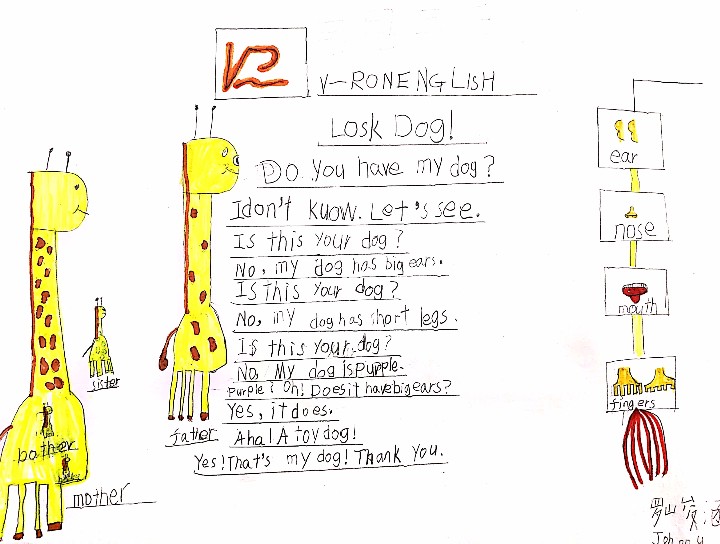 V-RONENGLISH
Losk Dog!
Do you have my dog?
I don't kuow. Let's see.
Is this your dog?
No, my dog has big ears.
Is this your dog?
No, my dog has short legs.
Is this your dog?
No My dog is purple.
Purple? Oh! Does it have big ears?
Yes, it does.
Aha! A toy dog!
Yes! That's my dog! Thank you.
father
sister
bother
mother
ear
nose
mouth
fingers